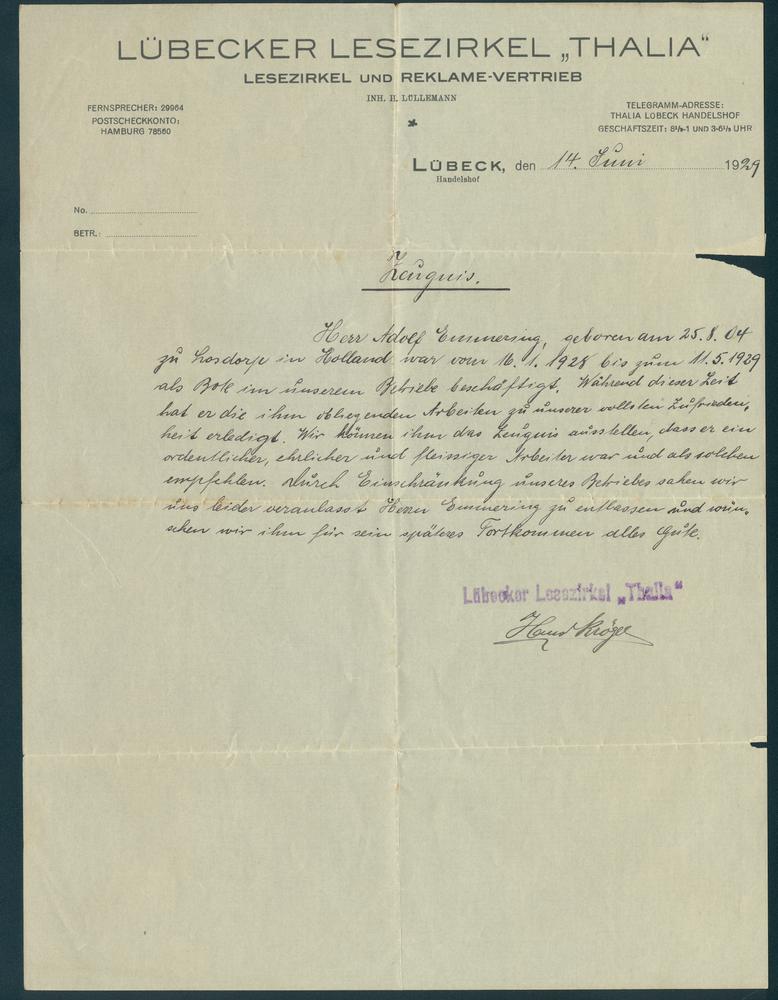 LÜBECKER LESEZIRKEL „THALIA“
LESEZIRKEL UND REKLAME-VERTRIEB
INH. H. LÜLLEMANN
FERNSPRECHER: 29964
POSTSCHECKKONTO:
HAMBURG 78560
TELEGRAMM-ADRESSE:
THALIA LÜBECK HANDELSHOF
GESCHÄFTSZEIT: 8½-1 UND 3-6½ UHR
LÜBECK, den 14. Juni 1929
Handelshof
No.
BETR.:
Zeugnis.
Herr Adolf Emmering, geboren am 25.8.04
zu Losdorp in Holland war vom 16.1.1928 bis zum 11.5.1929
als Bote in unserem Betriebe beschäftigt. Während dieser Zeit
hat er die ihm obliegenden Arbeiten zu unserer vollsten Zufrieden-
heit erledigt. Wir können ihm das Zeugnis ausstellen, dass er ein
ordentlicher, ehrlicher und fleissiger Arbeiter war und als solchen
empfehlen. Durch Einschränkung unseres Betriebes sahen wir
uns leider veranlasst Herrn Emmering zu entlassen und wün-
schen wir ihm für sein späteres Fortkommen alles Gute.
Lübecker Lesezirkel „Thalia“
Hans Kröger